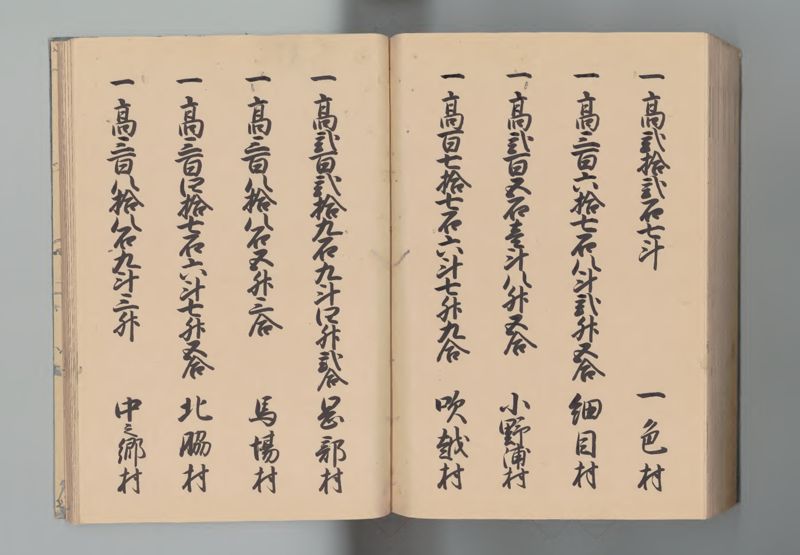 一 高弐拾弐石七斗 一色村
一 高三百六拾七石八斗弐升五合 細目村
一 高弐百五石壱斗八升五合 小野浦村
一 高百七拾七石六斗七升九合 吹越村
一 高弐百弐拾九石九斗四升弐合 岡部村
一 高三百八拾八石五升三合 馬場村
一 高三百四拾七石六斗七升五合 北脇村
一 高三百八拾八石九斗三升 中之郷村